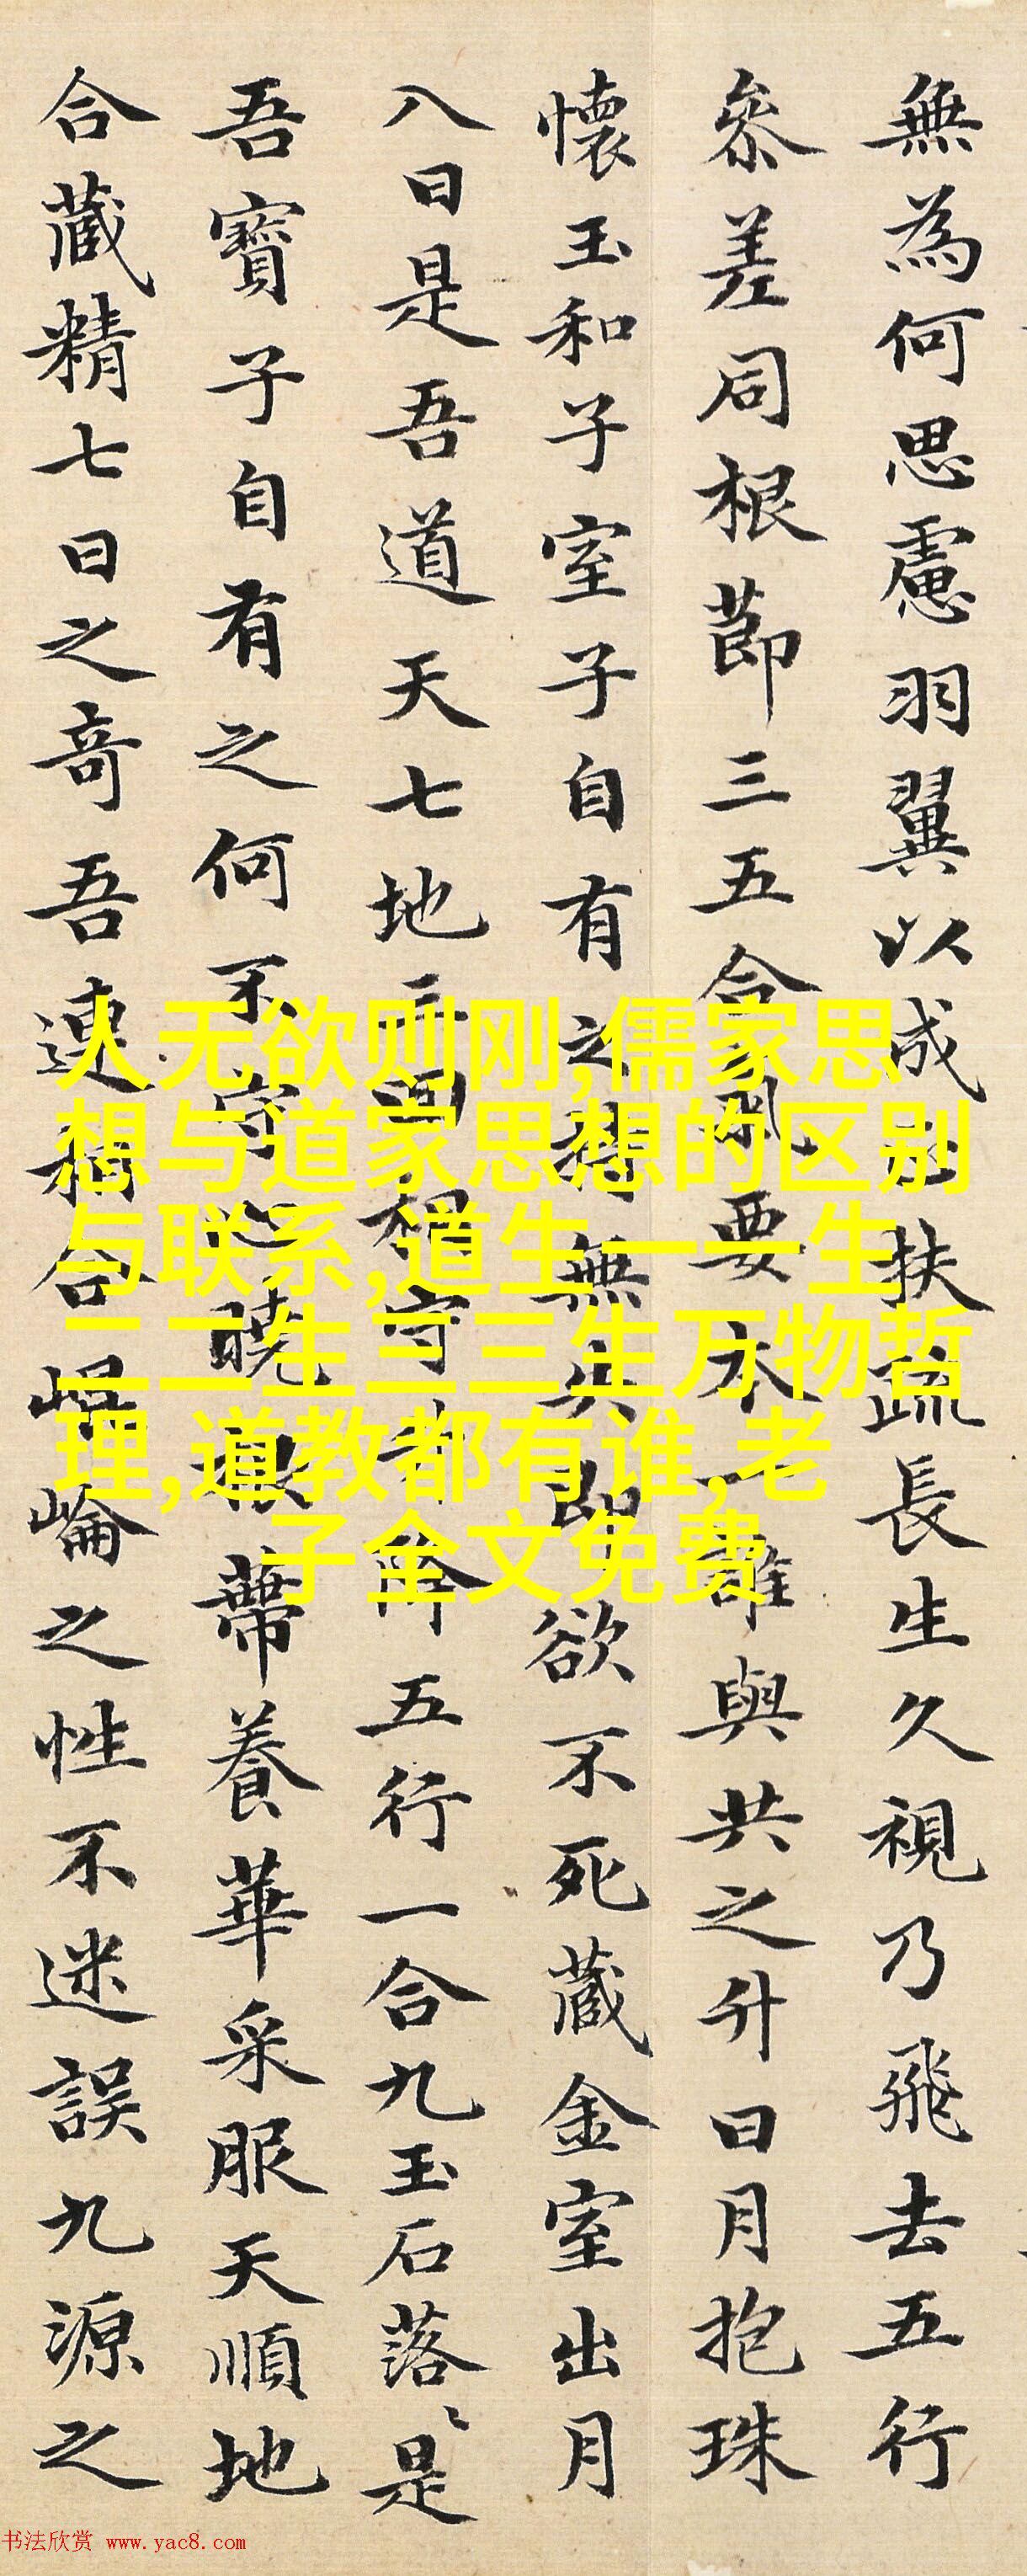 無為何思慮羽翼以成扶疏長生久視乃飛去五行
參差同根節三五合氣要本一誰與共之升日月抱珠
懷玉和子室子自有之持無失即欲不死藏金室出月
入日是吾道天七地三回相守升降五行一合九玉石落〻是
吾寶子自有之何不守心曉根蔕養華采服天順地
合藏精七日之奇吾連相合崐崘之性不迷誤九源之
人无欲则刚,儒家思
想与道家思想的区别
与联系,道生一一生
二二生三三生万物哲
理,道教都有谁,老
子全文免费
书法欣赏 www.yac8.com